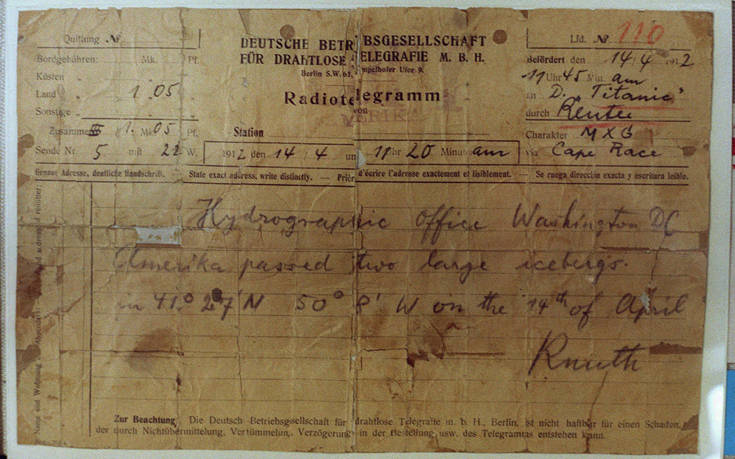 Quittung Nr.
DEUTSCHE BETRIEBSGESELLSCHAFT
Lfd. Nr. 110
Bordgebühren: Mk. Pf.
FÜR DRAHTLOSE TELEGRAFIE M. B. H.
Befördert den 14/4 1912
Berlin S.W. 61, Tempelhofer Ufer 9.
11 Uhr 45 Min. am
Küsten
Land 1.05
Radiotelegramm
an D. "Titanic"
Sonstige
von
durch Reuter
AMERIKA
Zusammen 1. Mk. 05 Pf.
Station
Charakter MXG
Sende Nr. 5 mit 22 W.
1912 den 14/4 um 11 Uhr 20 Minuten am
via Cape Race
Genaue Adresse, deutliche Handschrift. — State exact address, write distinctly. — Prière d'écrire l'adresse exactement et lisiblement. — Se ruega dirección exacta y escritura leible.
Hydrographic office Washington DC
Amerika passed two large icebergs.
in 41° 27' N 50° 8' W on the 14th of April
Knuth
Zur Beachtung. Die Deutsch Betriebsgesellschaft für drahtlose Telegrafie m. b. H., Berlin, ist nicht haftbar für einen Schaden,
der durch Nichtübermittelung, Verzögerung in der Bestellung usw. des Telegramms entstehen kann.